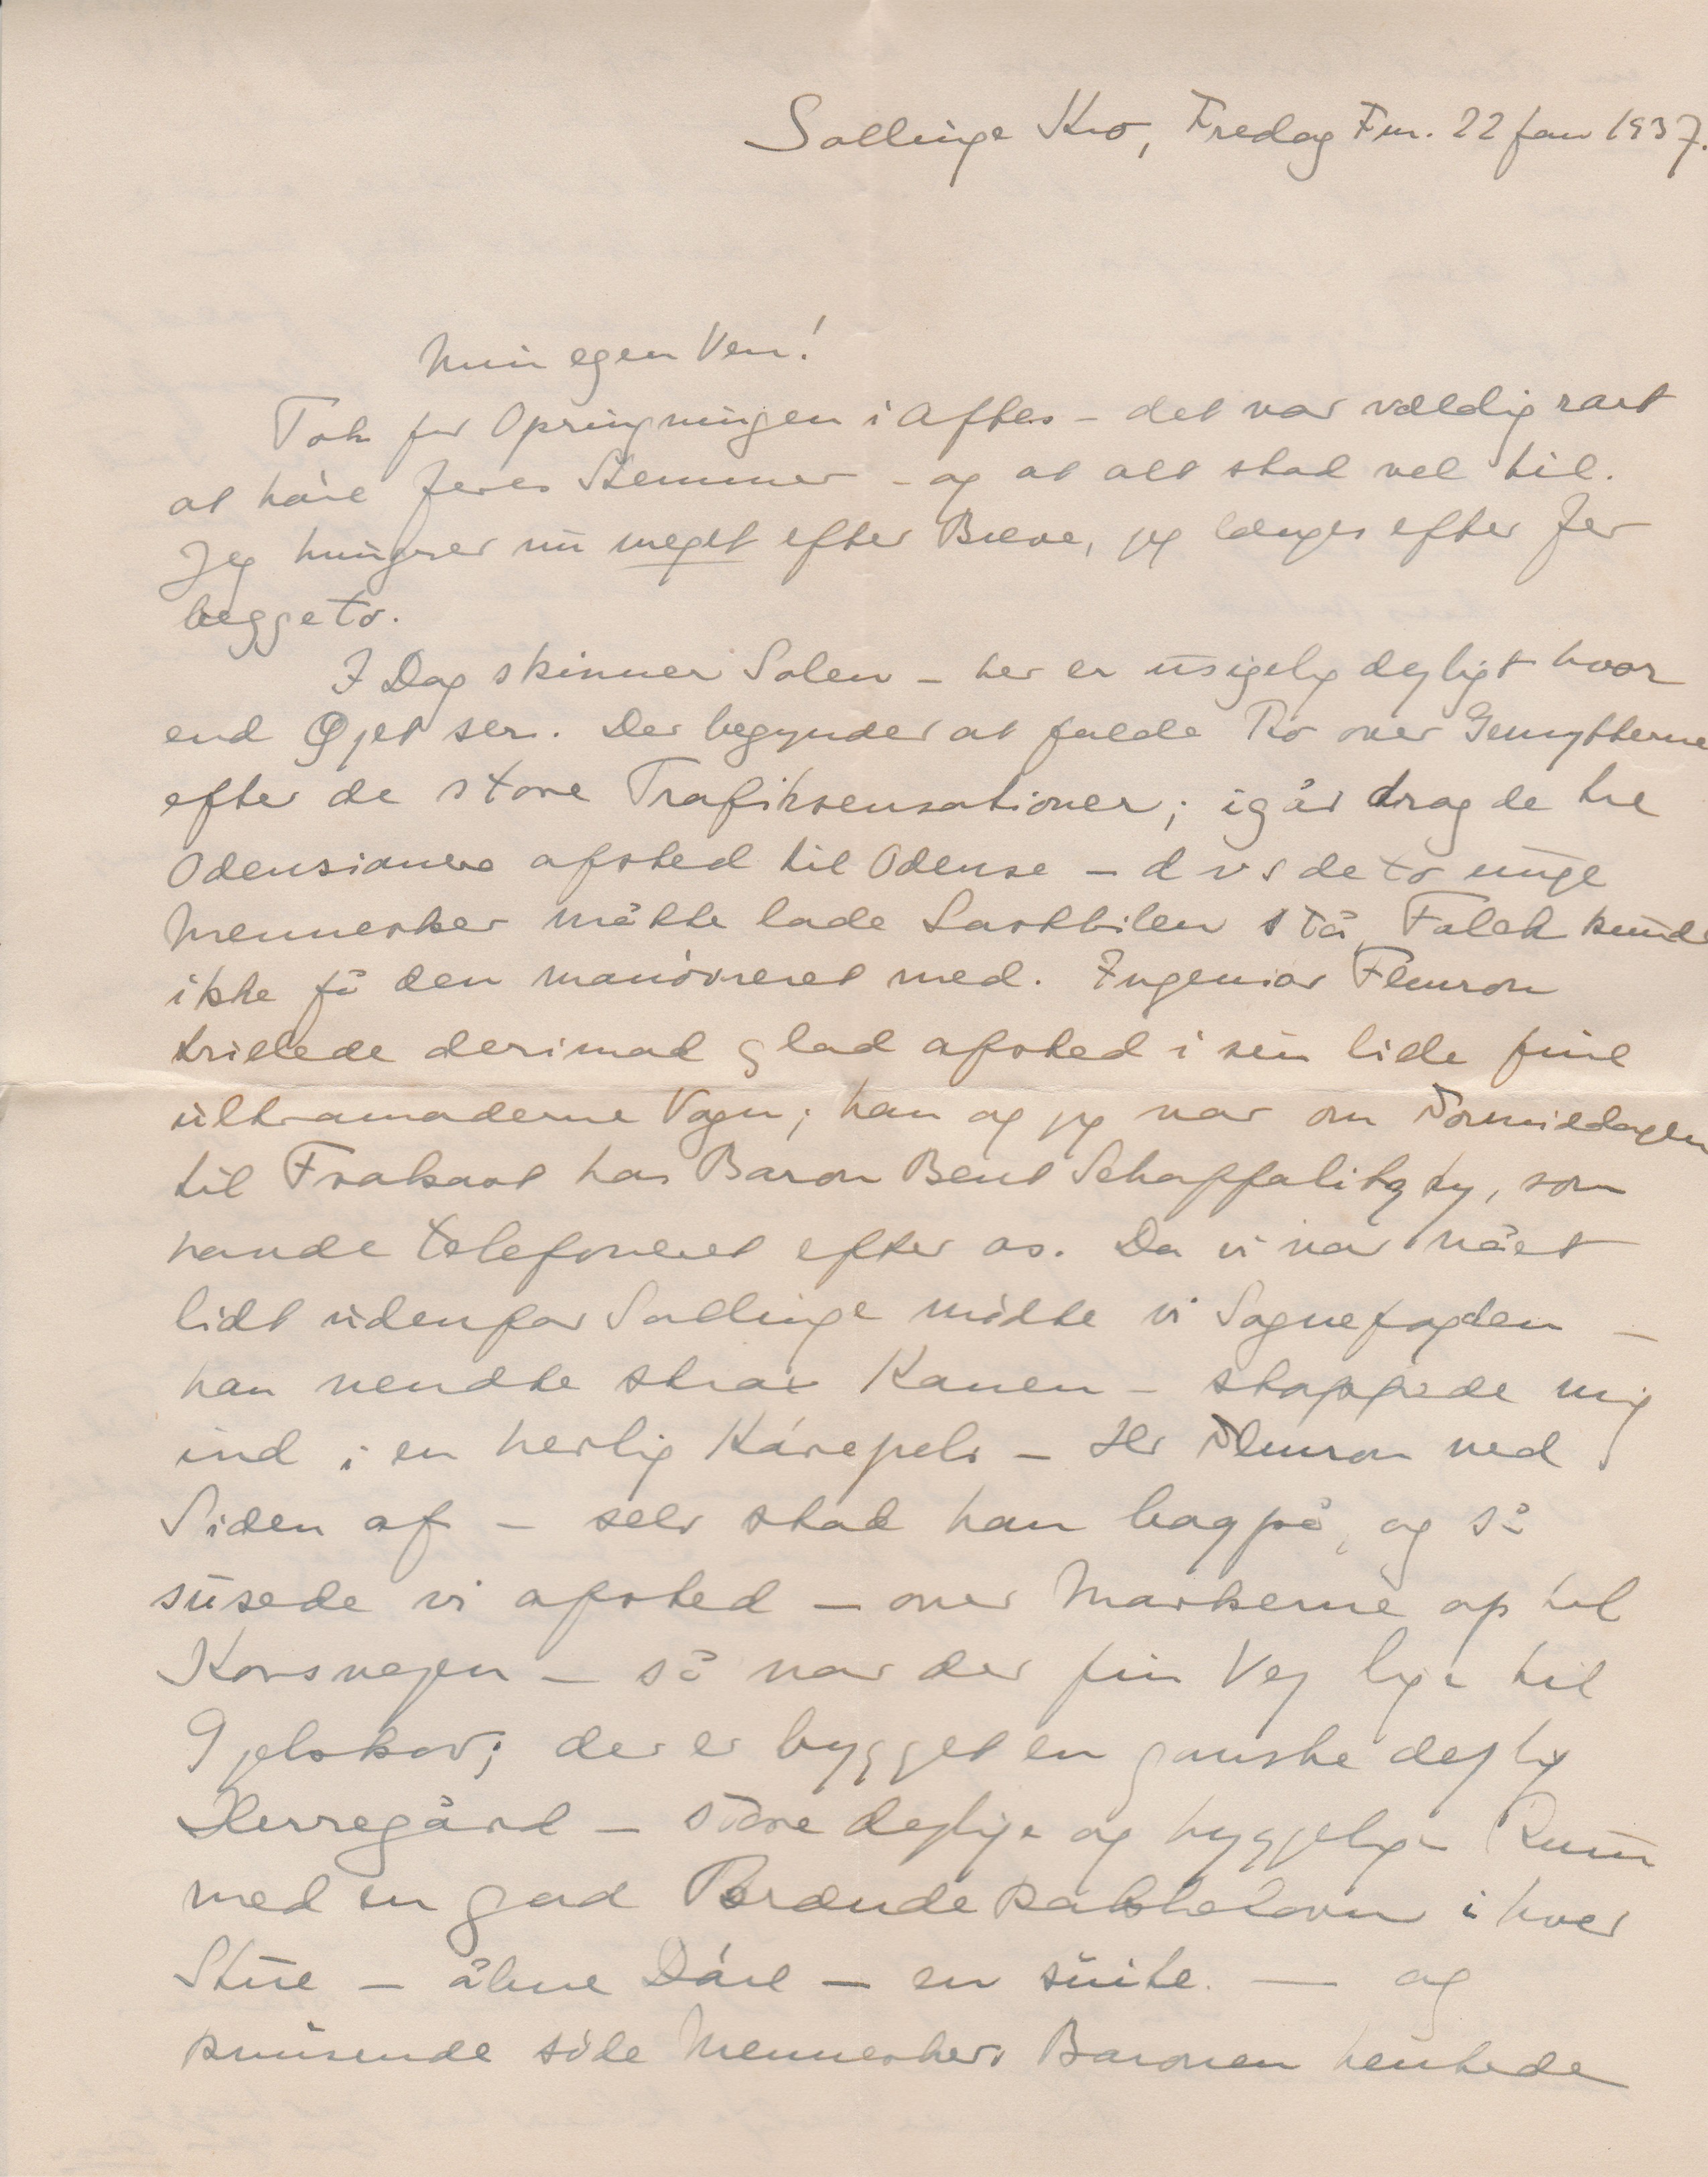 Sallinge Kro, Fredag Fm. 22 Jan 1937.
Min egen Ven!
Tak for Opringningen i Aftes – det var vældig rart
at høre Jeres Stemmer – og at alt stod vel til.
Jeg hungrer nu meget efter Breve, jeg længes efter Jer
begge to.
I Dag skinner Solen – her er usigelig dejligt hvor
end Øjet ser. Der begynder at falde Ro over Gemytterne
efter de store Trafiksensationer; igår drog de tre
Odensianere afsted til Odense – d v s de to unge
Mennesker måtte lade Lastbilen stå, Falck kunde
ikke få den manøvreret med. Ingeniør Fleuron
trillede derimod glad afsted i sin lille fine
ultramoderne Vogn; han og jeg var om Formiddagen
til Frokost hos Baron Bent Schaffalitzky, som
havde telefoneret efter os. Da vi var nået
lidt udenfor Sallinge mødte vi Sognefogden –
han vendte strax Kanen – stoppede mig
ind i en herlig Kørepels – Hr Fleuron ved
Siden af – selv stod han bagpå, og så
susede vi afsted – over Markerne op til
Korsvejen – så var der fin Vej lige til
Gjelskov; der er bygget en ganske dejlig
Herregård – store dejlige og hyggelige Rum
med en god Brændekakkelovn i hver
Stue – åbne Døre – en suite. — og
knusende søde Mennesker. Baronen hentede